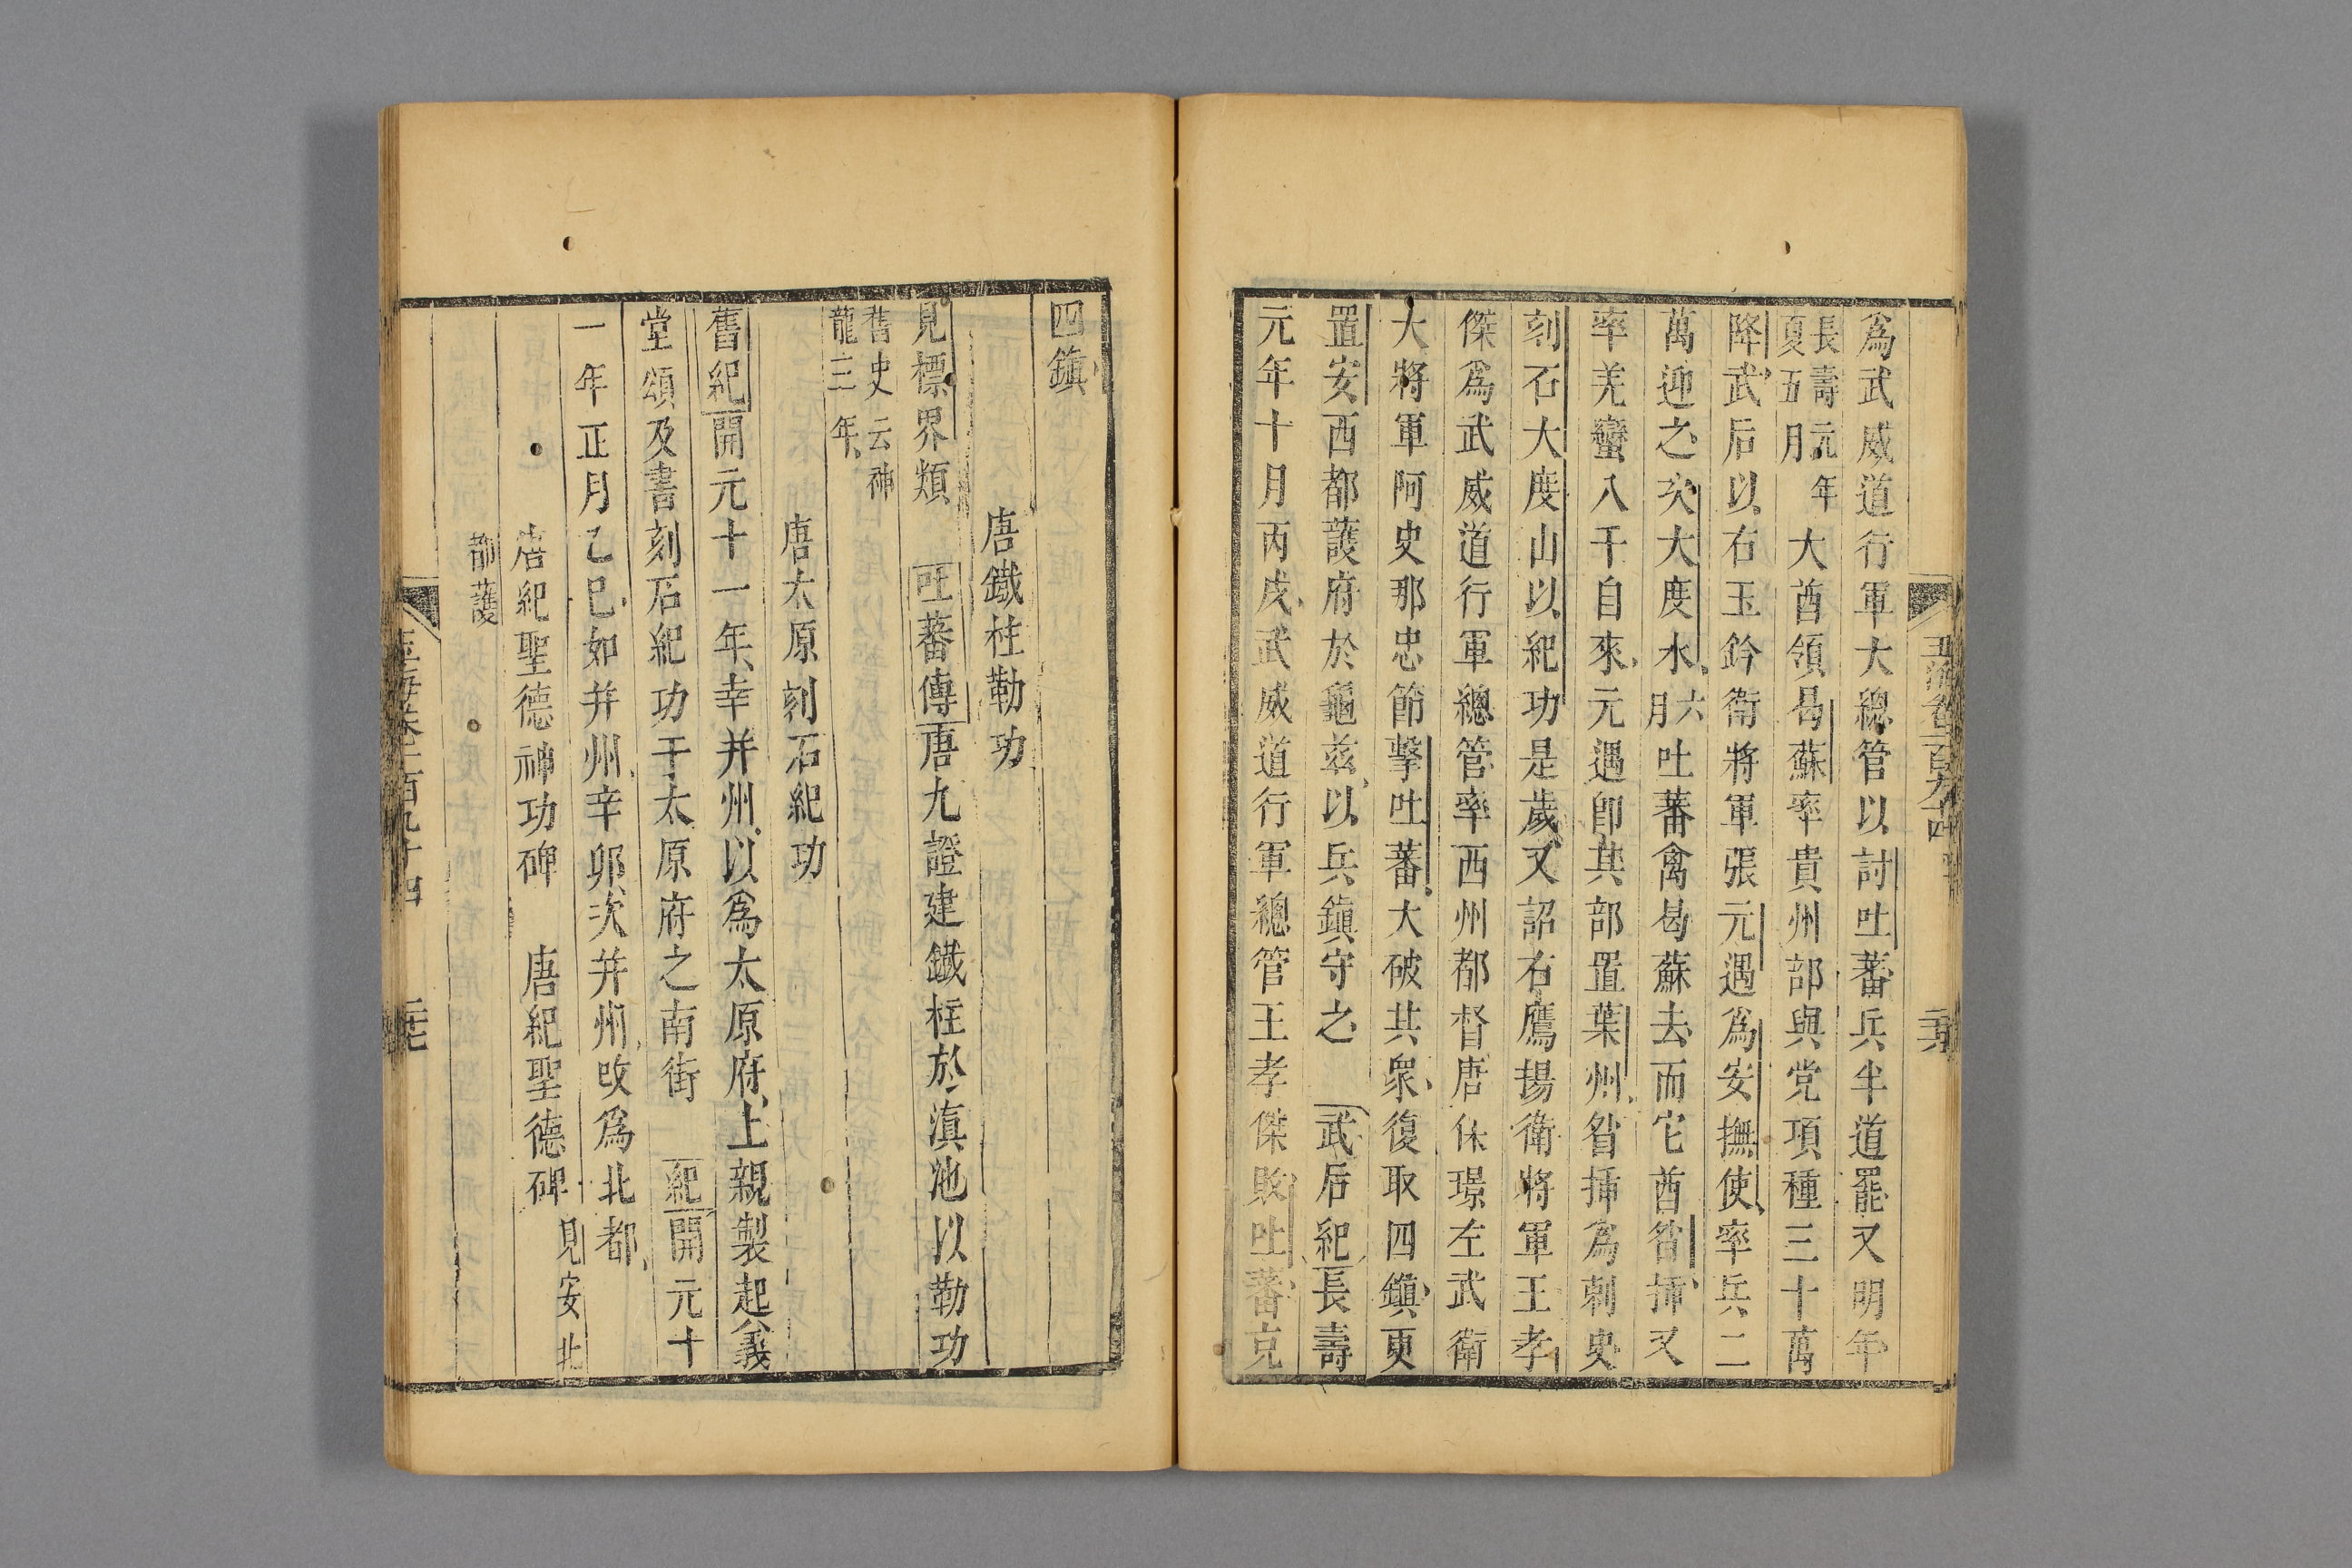 爲武威道行軍大總管以討吐蕃兵半道罷又明年
長壽元年夏五月大酋領曷蘇率貴州部與党項種三十萬
降武后以右玉鈐衛將軍張元遇爲安撫使率兵二
萬迎之次大度水六月吐蕃禽曷蘇去而它酋昝揷又
率羌蠻八千自來元遇卽其部置葉州昝揷爲刺史
刻石大度山以紀功是歲又詔右鷹揚衛將軍王孝
傑爲武威道行軍總管率西州都督唐休璟左武衛
大將軍阿史那忠節擊吐蕃大破其衆復取四鎭更
置安西都護府於龜兹以兵鎭守之 武后紀長壽
元年十月丙戌武威道行軍總管王孝傑敗吐蕃克
玉海卷一百九十四
四鎭
唐鐵柱勒功
見標界類 吐蕃傳唐九證建鐵柱於滇池以勒功
舊史云神龍三年
唐太原刻石紀功
舊紀開元十一年幸并州以爲太原府上親製起義
堂頌及書刻石紀功于太原府之南街 紀開元十
一年正月乙巳如并州辛卯次并州改爲北都
唐紀聖德神功碑 唐紀聖德碑 見安北
都護
玉海卷一百九十四